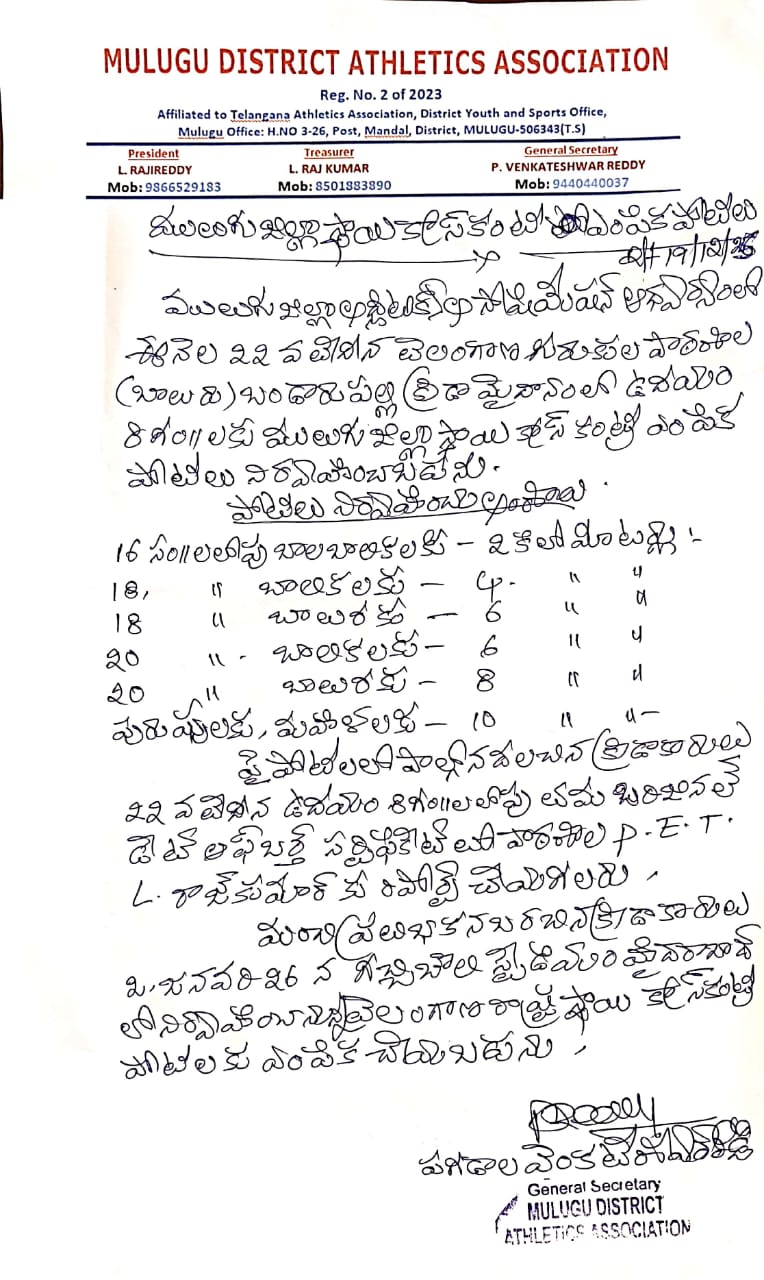 MULUGU DISTRICT ATHLETICS ASSOCIATION
Reg. No. 2 of 2023
Affiliated to Telangana Athletics Association, District Youth and Sports Office,
Mulugu Office: H.NO 3-26, Post, Mandal, District, MULUGU-506343(T.S)
President Treasurer General Secretary
L. RAJIREDDY L. RAJ KUMAR P. VENKATESHWAR REDDY
Mob: 9866529183 Mob: 8501883890 Mob: 9440440037
ములుగు జిల్లా స్థాయి క్రాస్ కంట్రీ ఎంపిక పోటీలు
19/12/25
ములుగు జిల్లా అథ్లెటిక్స్ అసోసియేషన్ ఆధ్వర్యంలో
ఈ నెల 22 వ తేదిన తెలంగాణ గురుకుల పాఠశాల
(బాలురు) బండారుపల్లి క్రీడా మైదానంలో ఉదయం
8 గం॥లకు ములుగు జిల్లా స్థాయి క్రాస్ కంట్రీ ఎంపిక
పోటీలు నిర్వహించబడును.
పోటీలు నిర్వహించు అంశాలు
16 సం॥లలోపు బాలబాలికలకు - 2 కిలో మీటర్లు :-
18, " బాలికలకు - 4. " "
18 " బాలురకు - 6 " "
20 " - బాలికలకు - 6 " "
20 " బాలురకు - 8 " "
పురుషులకు, మహిళలకు - 10 " " -
పై పోటీలలో పాల్గొనదలచిన క్రీడాకారులు
22 వ తేదిన ఉదయం 8 గం॥లలోపు తమ ఒరిజినల్
డేట్ ఆఫ్ బర్త్ సర్టిఫికేట్ లతో పాఠశాల P.E.T.
L. రాజ్ కుమార్ కు రిపోర్ట్ చేయగలరు.
మంచి ప్రతిభ కనబరచిన క్రీడాకారులు
2. జనవరి-26 న గచ్చిబౌలి స్టేడియం హైదరాబాద్
లో నిర్వహించనున్న తెలంగాణ రాష్ట్ర స్థాయి క్రాస్ కంట్రీ
పోటీలకు ఎంపిక చేయబడును.
పగడాల వెంకటేశ్వర్ రెడ్డి
General Secretary
MULUGU DISTRICT
ATHLETICS ASSOCIATION